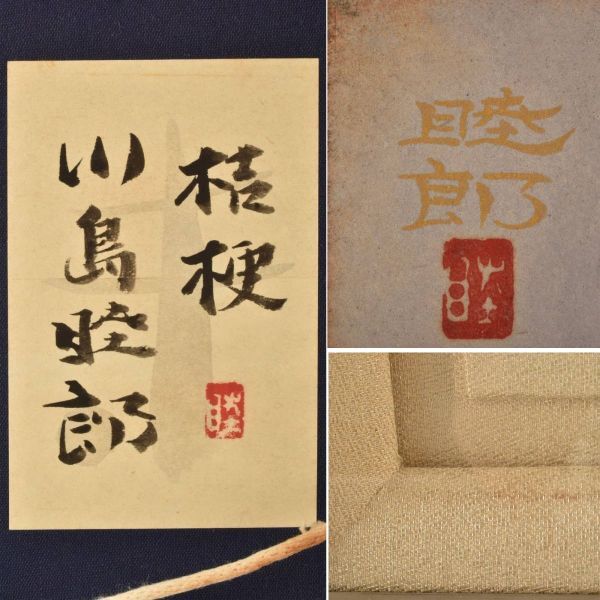 桔梗
川島睦郎
睦
睦郎
睦